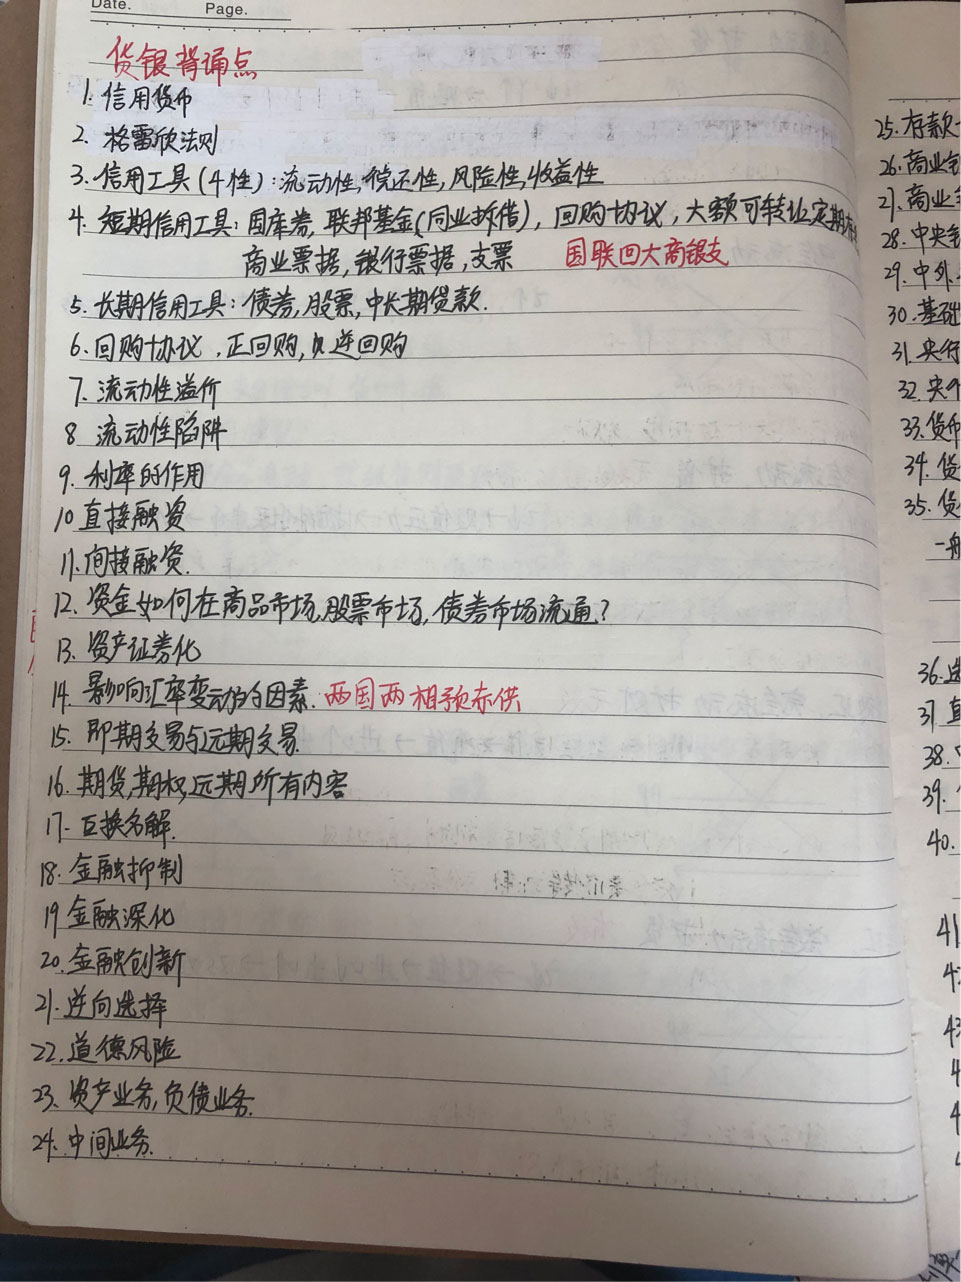 Date.
Page.
货银背诵点
1. 信用货币
2. 格雷欣法则
3. 信用工具(4性):流动性,偿还性,风险性,收益性
4. 短期信用工具:国库券,联邦基金(同业拆借),回购协议,大额可转让定期存
商业票据,银行票据,支票 国联回大商银支
5. 长期信用工具:债券,股票,中长期贷款.
6. 回购协议.正回购,逆回购
7. 流动性溢价
8 流动性陷阱
9. 利率的作用
10 直接融资
11. 间接融资.
12. 资金如何在商品市场,股票市场,债券市场流通?
13. 资产证券化
14. 影响汇率变动的因素. 两国两相预赤供
15. 即期交易与远期交易.
16. 期货,期权,远期所有内容
17. 互换名解.
18. 金融抑制
19 金融深化
20. 金融创新
21. 逆向选择
22. 道德风险
23. 资产业务,负债业务.
24. 中间业务.
25. 存款
26. 商业
27. 商业
28. 中央
29. 中外
30. 基础
31. 央行
32. 央
33. 货币
34. 货
35. 货
一般
36.
37. 直
38.
39.
40.
41
43